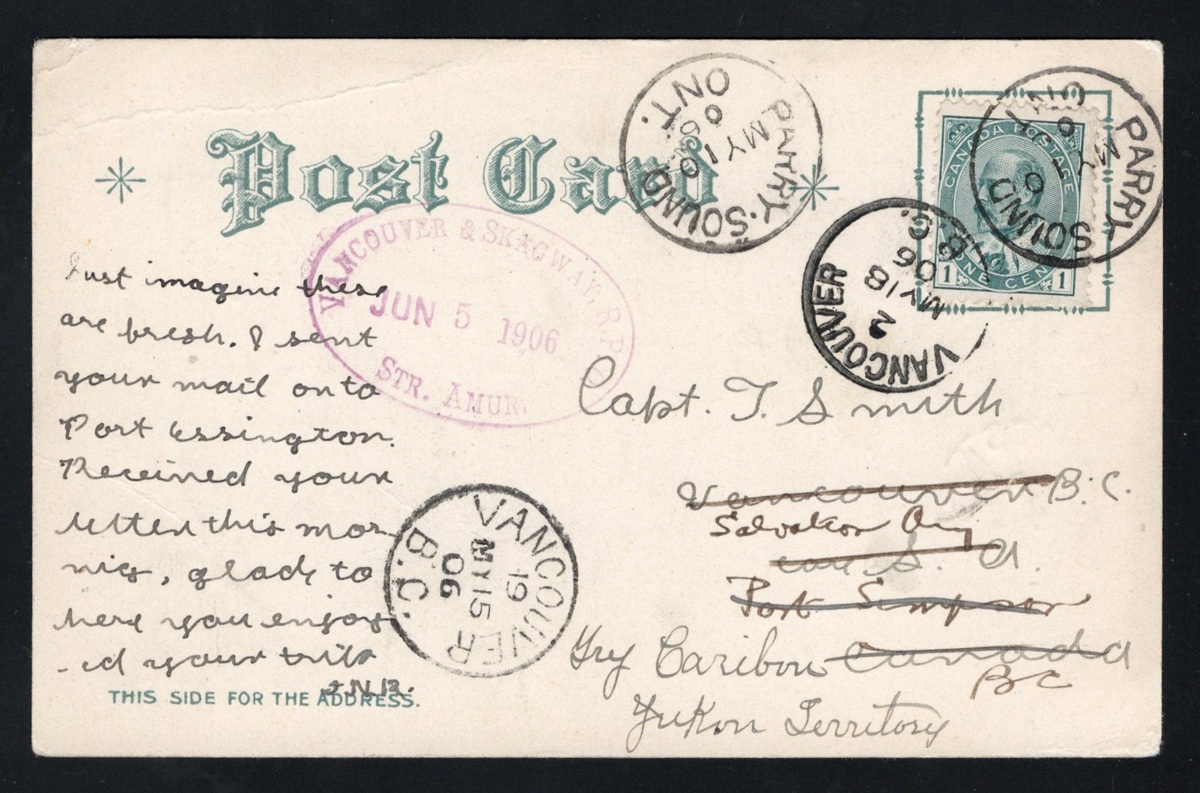 Post Card
PARRY·SOUND
ONT.
MY 10
06
PARRY SOUND
ONT.
MY 10
6
CANADA POSTAGE
1 ONE CENT 1
VANCOUVER
B.C.
2
MY 18
06
VANCOUVER & SKAGWAY. R.P.
JUN 5 1906
STR. AMUR.
Just imagine these
are fresh. I sent
your mail onto
Port Essington.
Received your
letter this mor
nig, glad to
here you enjoy
-ed your trip
J.N.B.
VANCOUVER
B.C.
19
MY 15
06
Capt. T. Smith
Vancouver B.C.
Salvation Army
S. A.
Port Simpson
Try Caribou Canada
BC
Yukon Territory
THIS SIDE FOR THE ADDRESS.